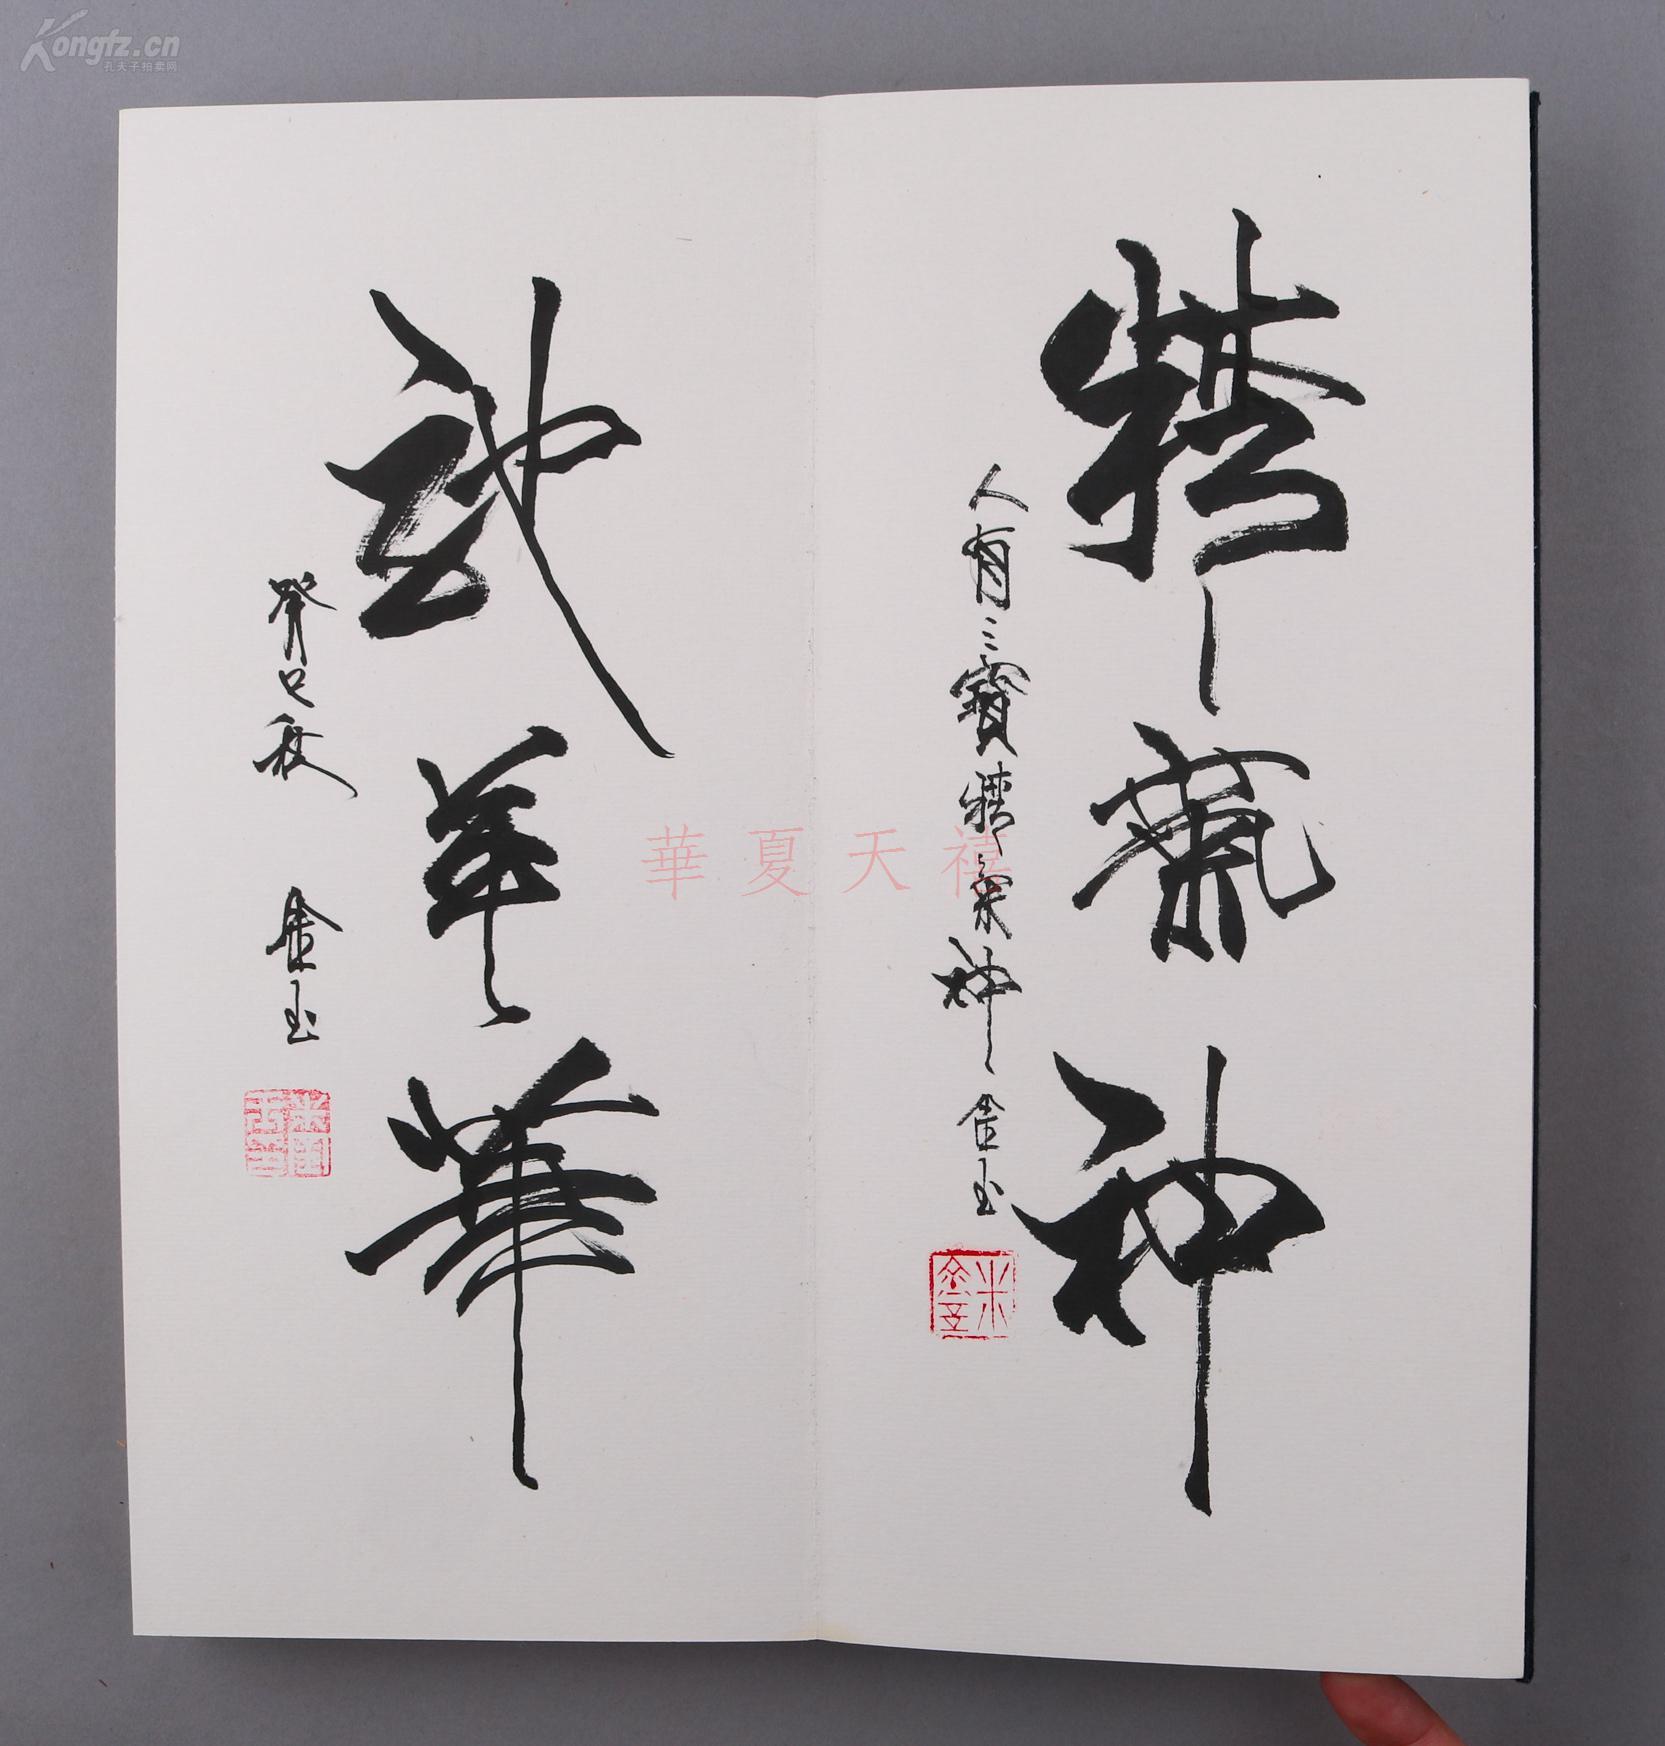 Kongfz.cn
孔夫子拍卖网
精氣神
人有三寶精氣神 金玉
年華
癸巳秋 金玉
華夏天禧